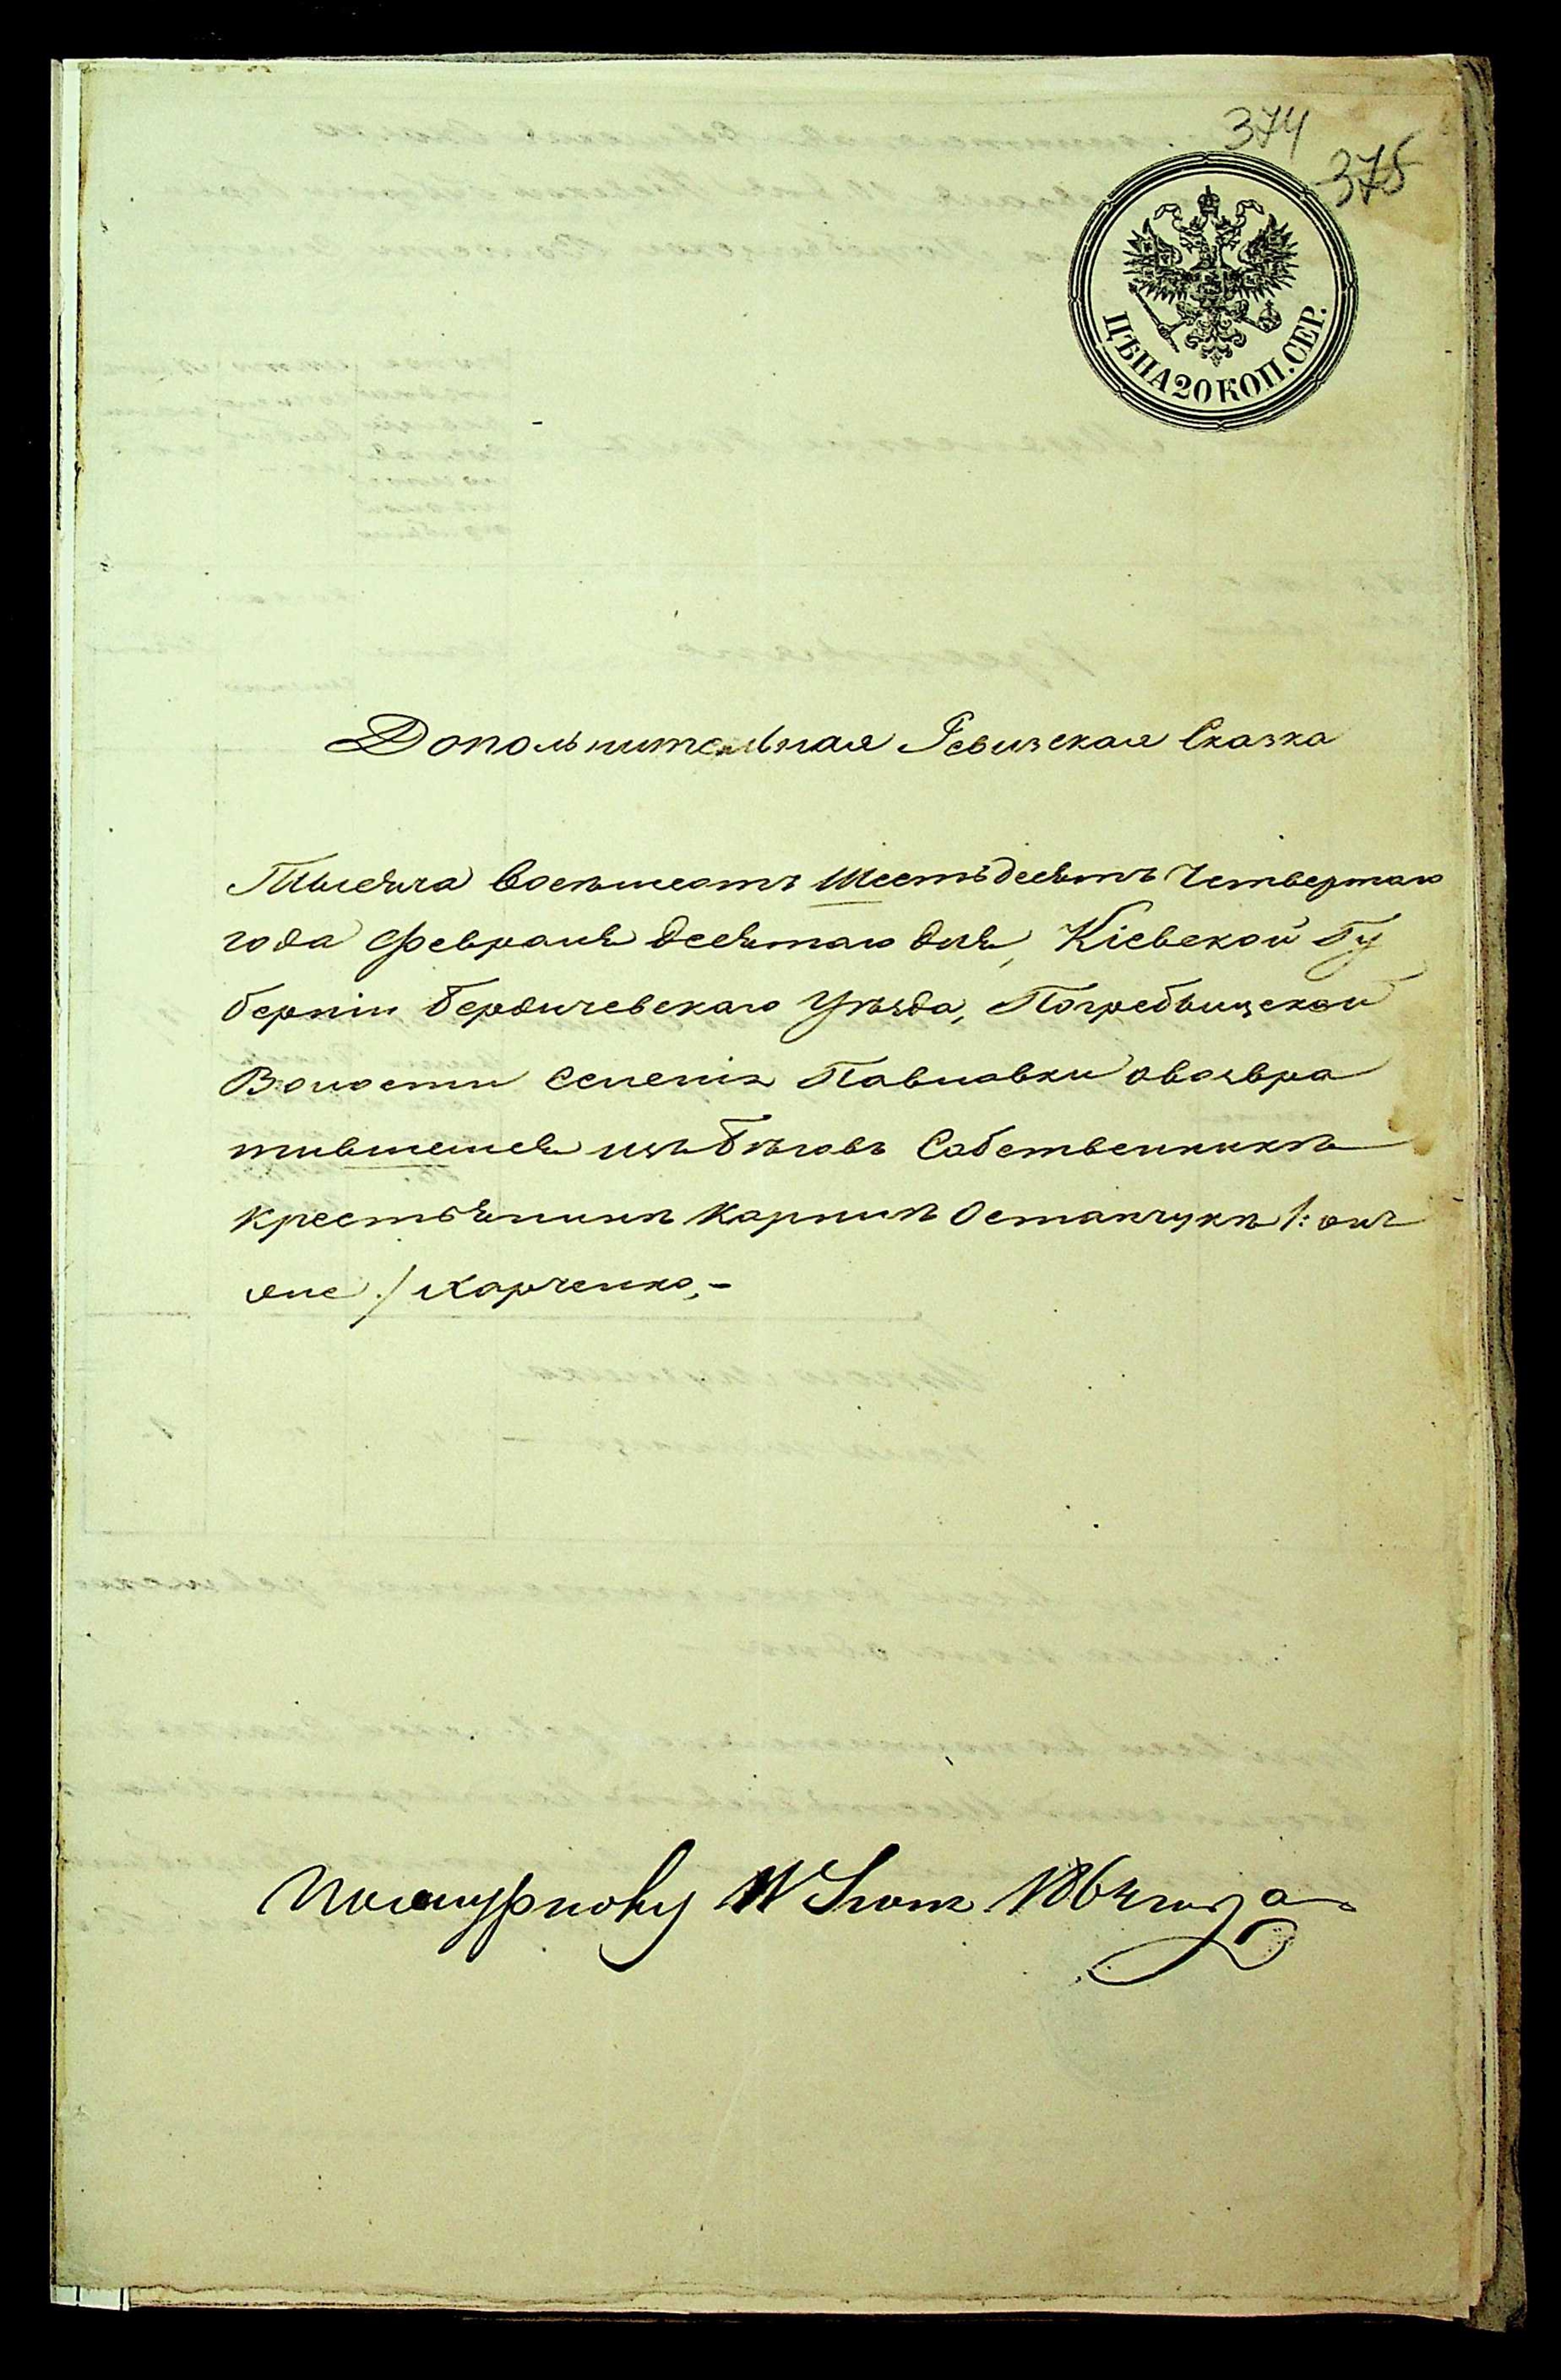 374
375
ЦѢНА 20 КОП. СЕР.
Дополнительная Ревизская Сказка
Тысяча восемьсотъ Шестьдесятъ Четвертаго
года февраля десятаго дня, Кіевской Гу
берніи Бердичевскаго Уѣзда, Погребыщской
Волости Селенія Павловки овозвра
тившемся изъ бѣговъ Собственникѣ
Крестьянинѣ Карпинѣ Остапчукѣ /: онъ
же :/ Харченко,-
1864 года